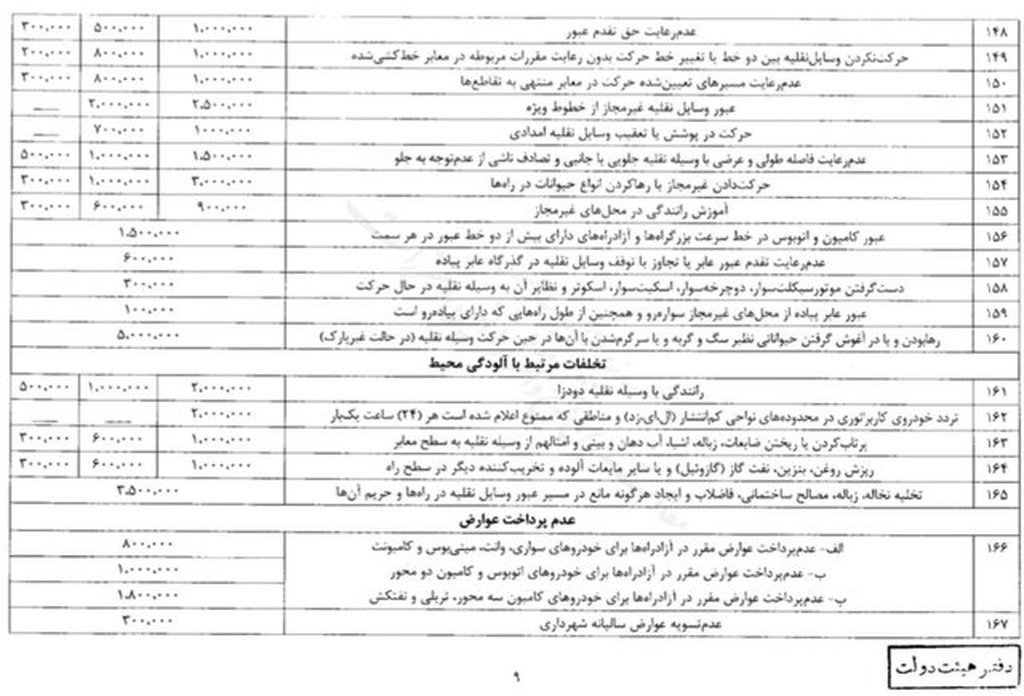 ۱۴۸ عدم‌رعایت حق تقدم عبور ۱,۰۰۰,۰۰۰ ۵۰۰,۰۰۰ ۳۰۰,۰۰۰
۱۴۹ حرکت‌نکردن وسایل‌نقلیه بین دو خط یا تغییر خط حرکت بدون رعایت مقررات مربوطه در معابر خط‌کشی‌شده ۱,۰۰۰,۰۰۰ ۸۰۰,۰۰۰ ۲۰۰,۰۰۰
۱۵۰ عدم‌رعایت مسیرهای تعیین‌شده حرکت در معابر منتهی به تقاطع‌ها ۱,۰۰۰,۰۰۰ ۸۰۰,۰۰۰ ۳۰۰,۰۰۰
۱۵۱ عبور وسایل نقلیه غیرمجاز از خطوط ویژه ۲,۵۰۰,۰۰۰ ۲,۰۰۰,۰۰۰ ـــ
۱۵۲ حرکت در پوشش یا تعقیب وسایل نقلیه امدادی ۱۰۰۰,۰۰۰ ۷۰۰,۰۰۰ ـــ
۱۵۳ عدم‌رعایت فاصله طولی و عرضی با وسیله نقلیه جلویی یا جانبی و تصادف ناشی از عدم‌توجه به جلو ۱,۵۰۰,۰۰۰ ۱,۰۰۰,۰۰۰ ۵۰۰,۰۰۰
۱۵۴ حرکت‌دادن غیرمجاز یا رهاکردن انواع حیوانات در راه‌ها ۳,۰۰۰,۰۰۰ ۱,۰۰۰,۰۰۰ ۳۰۰,۰۰۰
۱۵۵ آموزش رانندگی در محل‌های غیرمجاز ۹۰۰,۰۰۰ ۶۰۰,۰۰۰ ۳۰۰,۰۰۰
۱۵۶ عبور کامیون و اتوبوس در خط سرعت بزرگراه‌ها و آزادراه‌های دارای بیش از دو خط عبور در هر سمت ۱,۵۰۰,۰۰۰
۱۵۷ عدم‌رعایت تقدم عبور عابر یا تجاوز یا توقف وسایل نقلیه در گذرگاه عابر پیاده ۶۰۰,۰۰۰
۱۵۸ دست‌گرفتن موتورسیکلت‌سوار، دوچرخه‌سوار، اسکیت‌سوار، اسکوتر و نظایر آن به وسیله نقلیه در حال حرکت ۳۰۰,۰۰۰
۱۵۹ عبور عابر پیاده از محل‌های غیرمجاز سواره‌رو و همچنین از طول راه‌هایی که دارای پیاده‌رو است ۱۰۰,۰۰۰
۱۶۰ رهابودن و یا در آغوش گرفتن حیواناتی نظیر سگ و گربه و یا سرگرم‌شدن با آن‌ها در حین حرکت وسیله نقلیه (در حالت غیرپارک) ۵,۰۰۰,۰۰۰
تخلفات مرتبط با آلودگی محیط
۱۶۱ رانندگی با وسیله نقلیه دودزا ۲,۰۰۰,۰۰۰ ۱,۰۰۰,۰۰۰ ۵۰۰,۰۰۰
۱۶۲ تردد خودروی کاربراتوری در محدوده‌های نواحی کم‌انتشار (ال‌ای‌زد) و مناطقی که ممنوع اعلام شده است هر (۲۴) ساعت یک‌بار ۲,۰۰۰,۰۰۰ ـــ ـــ
۱۶۳ پرتاب‌کردن یا ریختن ضایعات، زباله، اشیا، آب دهان و بینی و امثالهم از وسیله نقلیه به سطح معابر ۱,۰۰۰,۰۰۰ ۶۰۰,۰۰۰ ۳۰۰,۰۰۰
۱۶۴ ریزش روغن، بنزین، نفت گاز (گازوئیل) و یا سایر مایعات آلوده و تخریب‌کننده دیگر در سطح راه ۱,۰۰۰,۰۰۰ ۶۰۰,۰۰۰ ۳۰۰,۰۰۰
۱۶۵ تخلیه نخاله، زباله، مصالح ساختمانی، فاضلاب و ایجاد هرگونه مانع در مسیر عبور وسایل نقلیه در راه‌ها و حریم آن‌ها ۳,۵۰۰,۰۰۰
عدم پرداخت عوارض
۱۶۶ الف- عدم‌پرداخت عوارض مقرر در آزادراه‌ها برای خودروهای سواری، وانت، مینی‌بوس و کامیونت ۸۰۰,۰۰۰
ب- عدم‌پرداخت عوارض مقرر در آزادراه‌ها برای خودروهای اتوبوس و کامیون دو محور ۱,۰۰۰,۰۰۰
پ- عدم‌پرداخت عوارض مقرر در آزادراه‌ها برای خودروهای کامیون سه محور، تریلی و نفتکش ۱,۸۰۰,۰۰۰
۱۶۷ عدم‌تسویه عوارض سالیانه شهرداری ۳۰۰,۰۰۰
دفتر هیئت دولت
۹